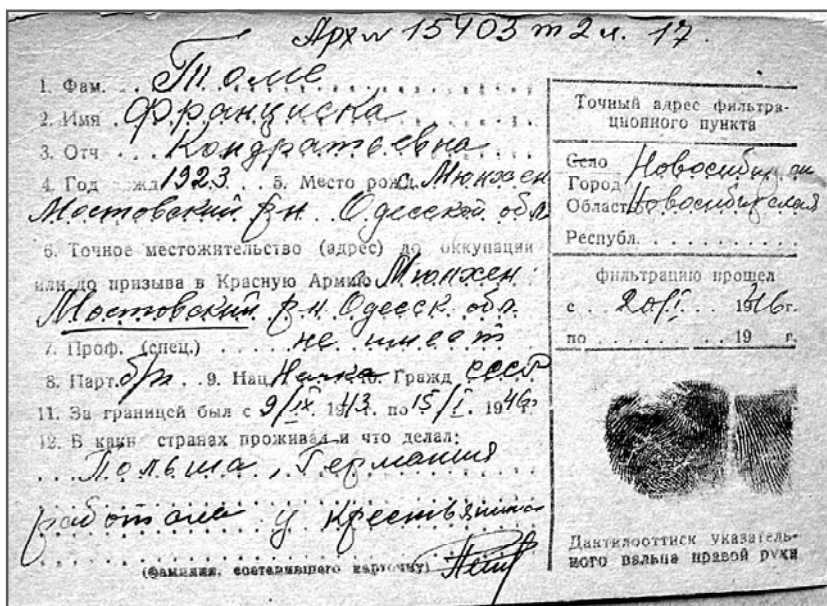 Арх № 15403 т 2 л. 17.
1. Фам. Томе
2. Имя Франциска
3. Отч Кондратьевна
4. Год жд 1923 5. Место рожд. с. Мюнхен
Мостовский р-н. Одесской обл
6. Точное местожительство (адрес) до оккупации
или до призыва в Красную Армию с. Мюнхен
Мостовский р-н Одесск. обл.
7. Проф. (спец.) не имеет
8. Парт. б/п 9. Нац. Немка 10. Гражд СССР
11. За границей был с 9/IX 1943 г. по 15/I 1946 г.
12. В каки странах проживал и что делал:
Польша, Германия
работала у крестьянина
(фамилия, составившего карточку)
Точный адрес фильтра-
ционного пункта
Село
Город Новосибирск
Область Новосибирская
Республ.
фильтрацию прошел
с 20/I 1946 г.
по 19 г.
Дактилооттиск указатель-
ного пальца правой руки